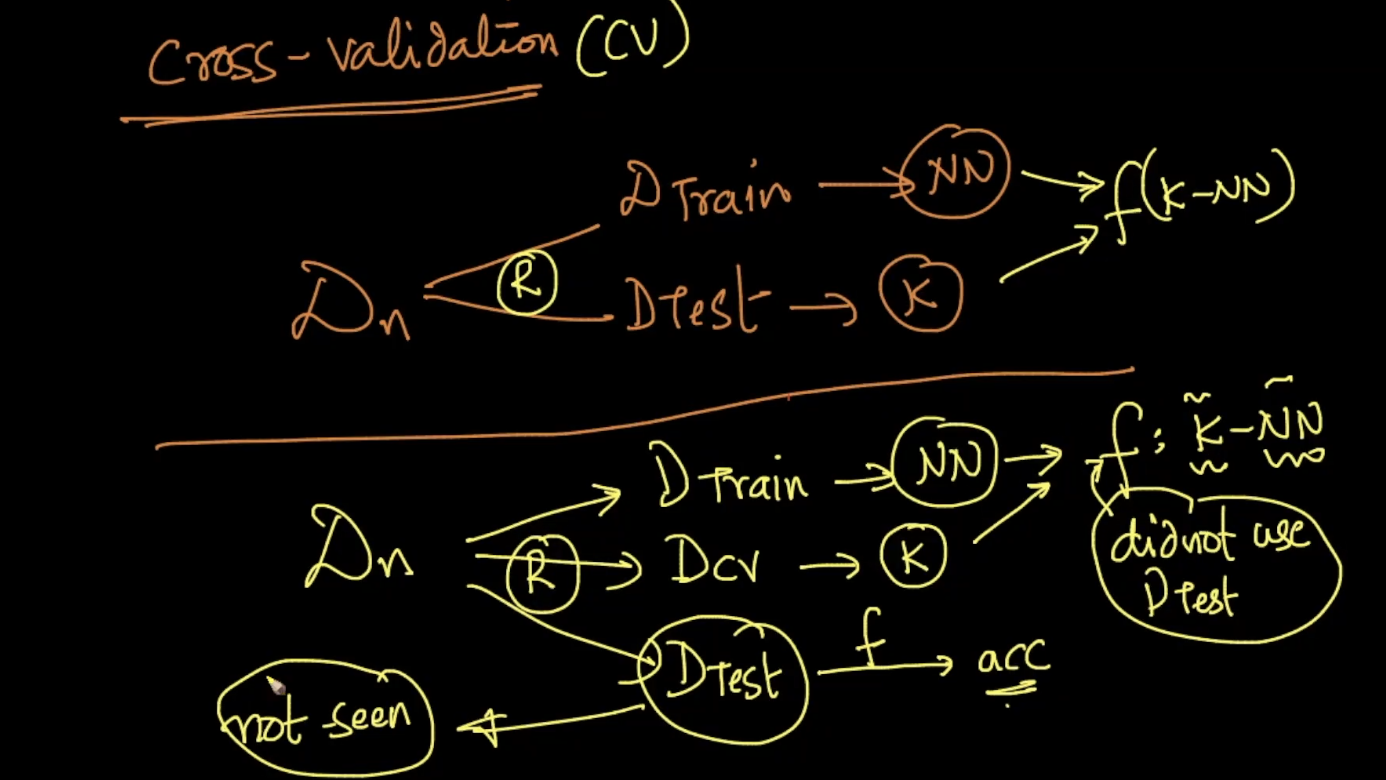 Cross-validation (CV)
DTrain → NN → f(K-NN)
Dn
R
DTest → K
DTrain → NN → f: K-NN
Dn
R
Dcv → K
didnot use
DTest
DTest
f
→ acc
not seen